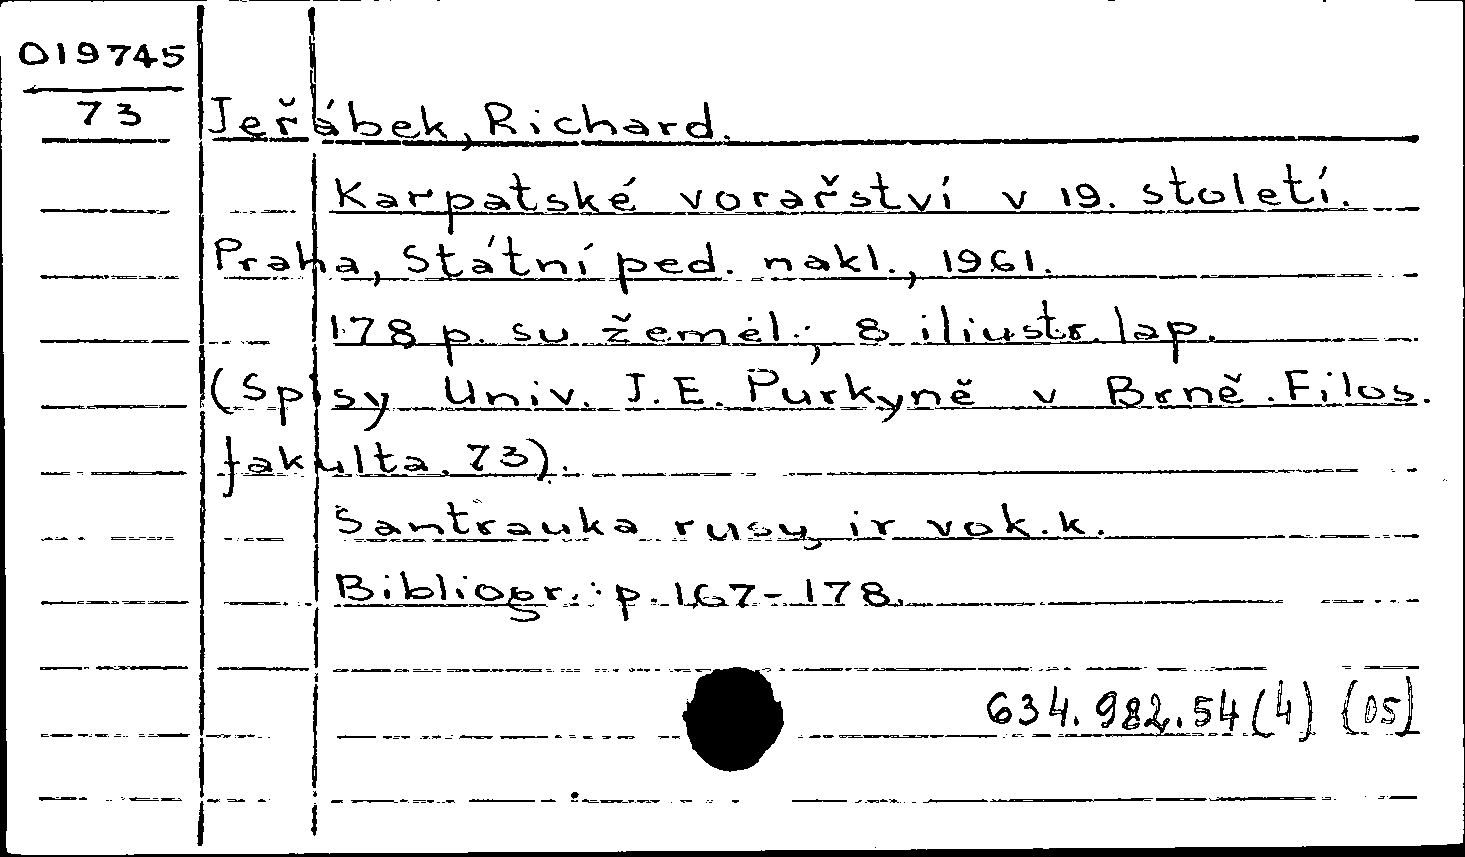 019745
73
Jeřábek, Richard.
Karpatské vorařství v 19. století.
Praha, Státní ped. nakl., 1961.
178 p. su žemėl.; 8 iliustr. lap.
(Spisy Univ. J. E. Purkyně v Brně. Filos.
fakulta. 73).
Santrauka rusų ir vok. k.
Bibliogr.: p. 167-178.
634.982.54(4) (05)